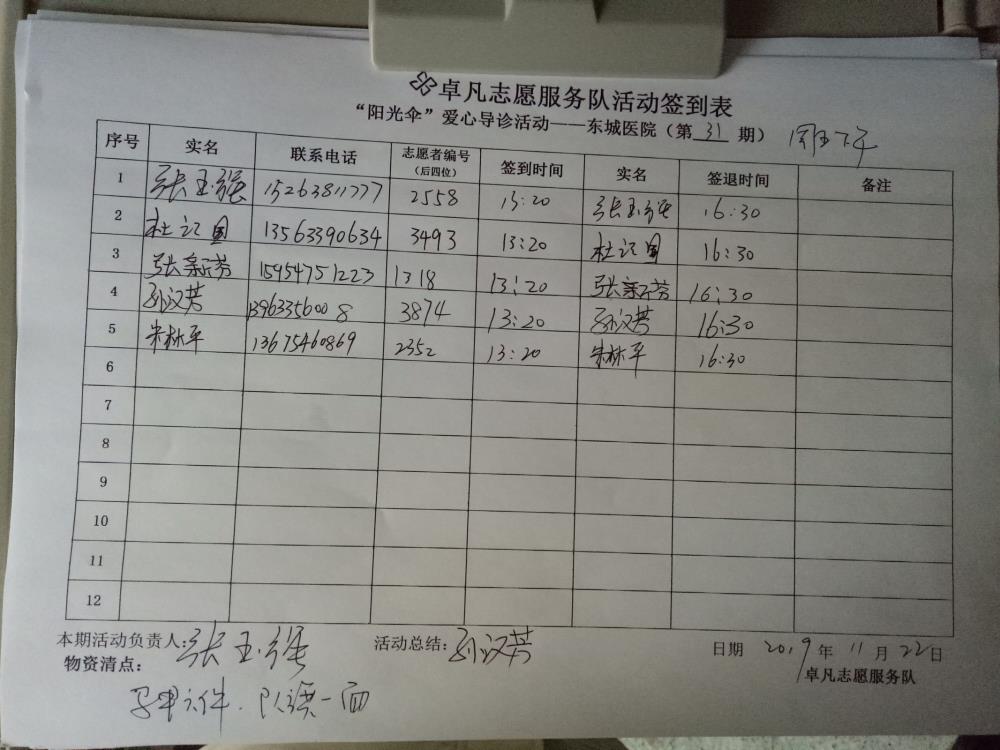 卓凡志愿服务队活动签到表
“阳光伞”爱心导诊活动——东城医院（第 31 期） 周五下午
序号 实名 联系电话 志愿者编号（后四位） 签到时间 实名 签退时间 备注
1 张玉强 15263811777 2558 13:20 张玉强 16:30
2 杜记国 13563390634 3493 13:20 杜记国 16:30
3 张新芬 15954751223 1318 13:20 张新芬 16:30
4 孙汉芳 13963356008 3874 13:20 孙汉芳 16:30
5 朱林平 13675460869 2352 13:20 朱林平 16:30
6
7
8
9
10
11
12
本期活动负责人:张玉强 活动总结:孙汉芳 日期 2019年11月22日
物资清点: 卓凡志愿服务队
马甲六件.队旗一面